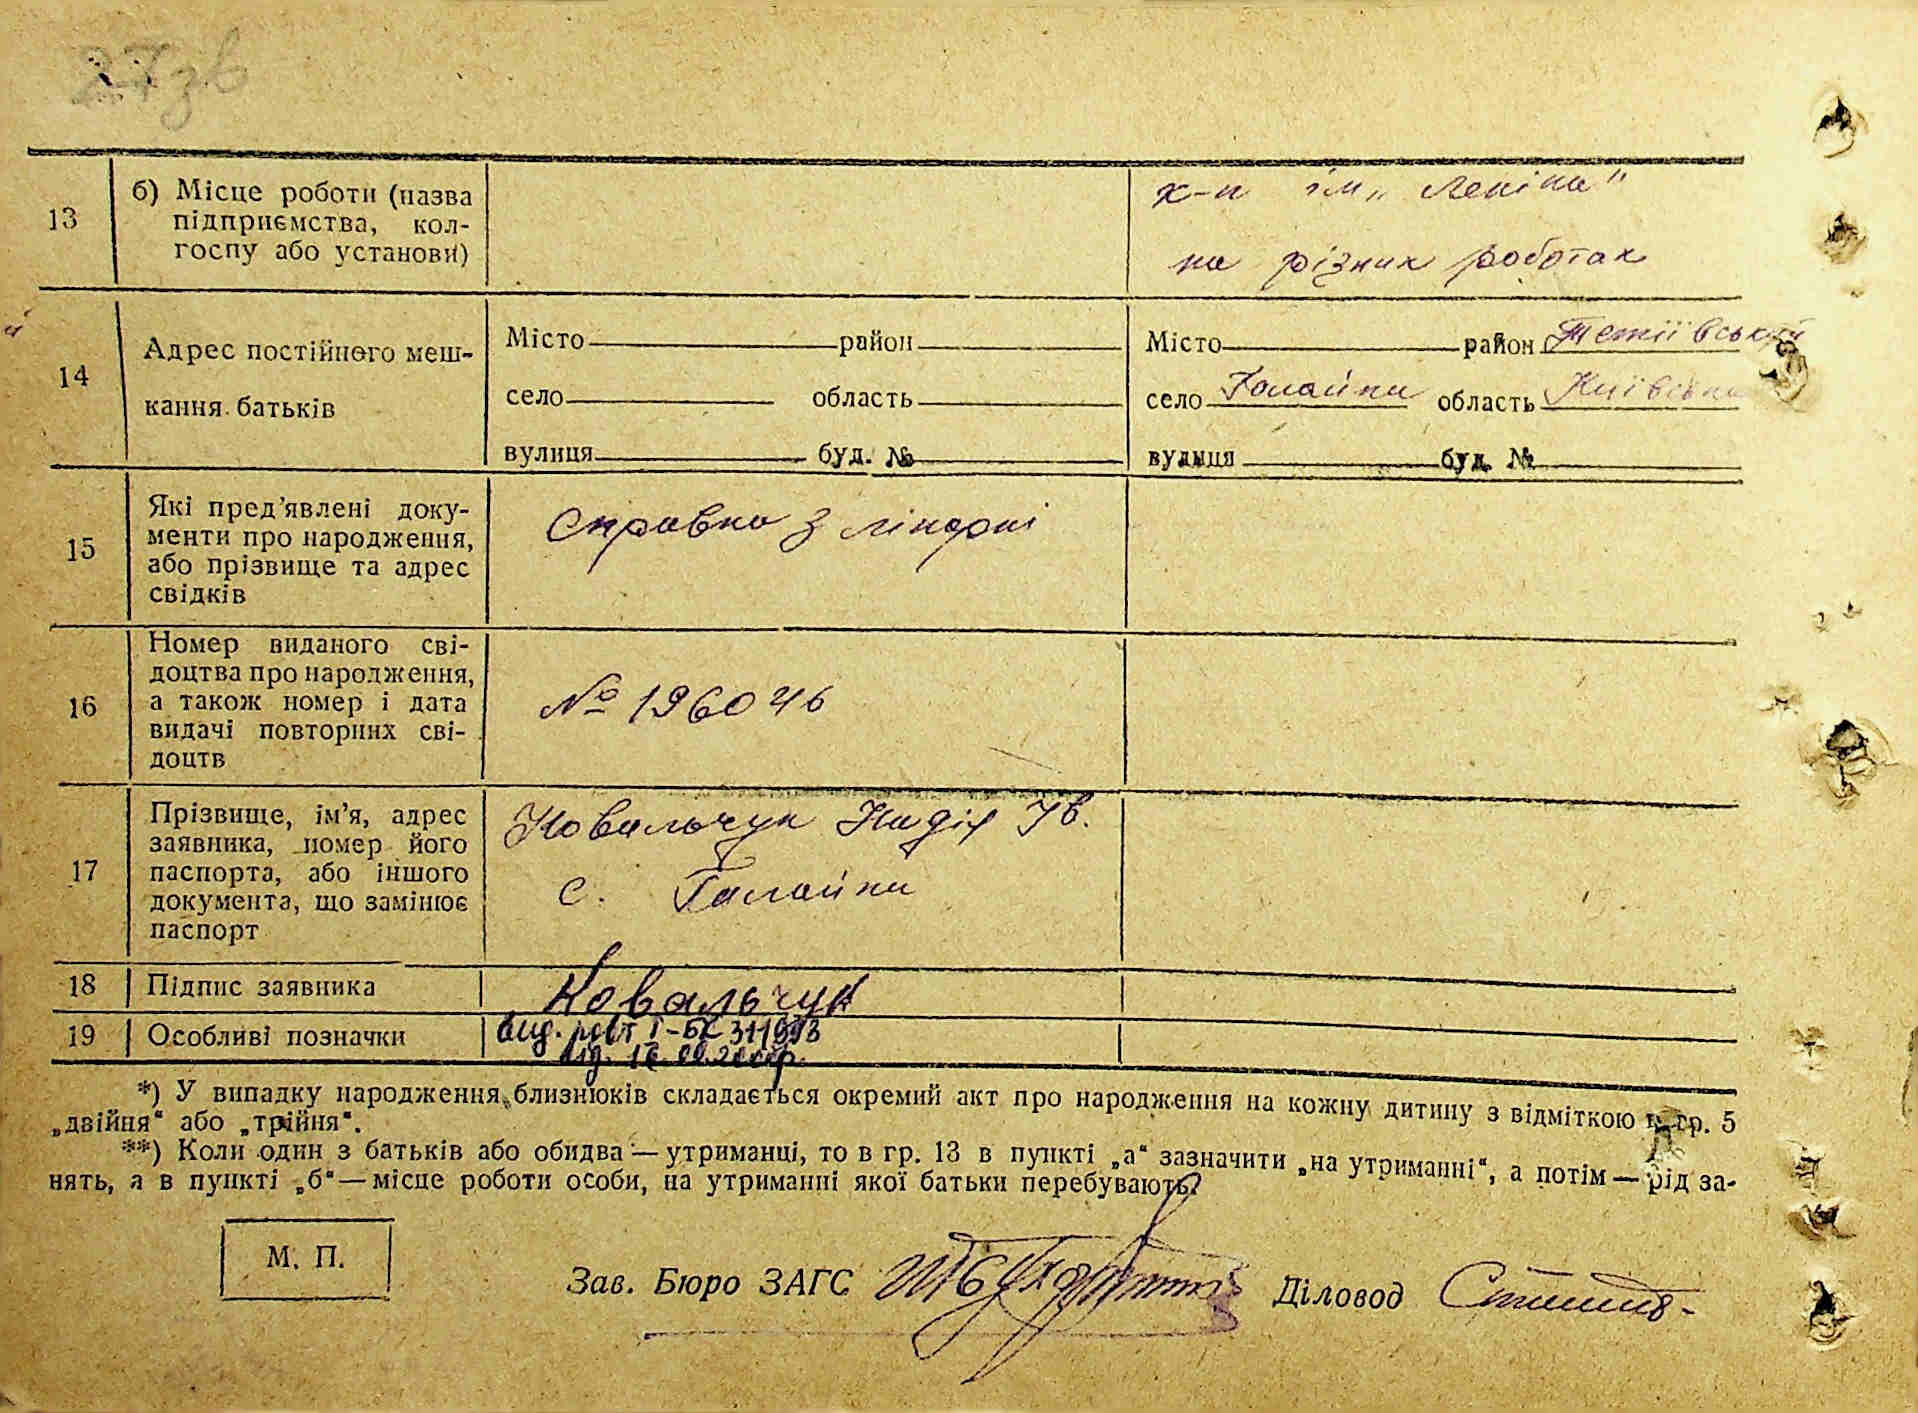 27зв
13
б) Місце роботи (назва
підприємства, кол-
госпу або установи)
к-п ім„ Леніна"
на різних роботах
14
Адрес постійного меш-
кання батьків
Місто район
село область
вулиця буд. №
Місто район Тетіївський
село Галайки область Київська
вулиця буд. №
15
Які пред’явлені доку-
менти про народження,
або прізвище та адрес
свідків
Справка з лікарні
16
Номер виданого сві-
доцтва про народження,
а також номер і дата
видачі повторних сві-
доцтв
№ 196046
17
Прізвище, ім’я, адрес
заявника, номер його
паспорта, або іншого
документа, що замінює
паспорт
Ковальчук Надія Ів.
с. Галайки
18 Підпис заявника
Ковальчук
19 Особливі позначки
вид. повт I-БК
*) У випадку народження близнюків складається окремий акт про народження на кожну дитину з відміткою в гр. 5
„двійня“ або „трійня“.
**) Коли один з батьків або обидва — утриманці, то в гр. 13 в пункті „а“ зазначити „на утриманні“, а потім — рід за-
нять, а в пункті „б“ — місце роботи особи, на утриманні якої батьки перебувають.
М. П.
Зав. Бюро ЗАГС Діловод